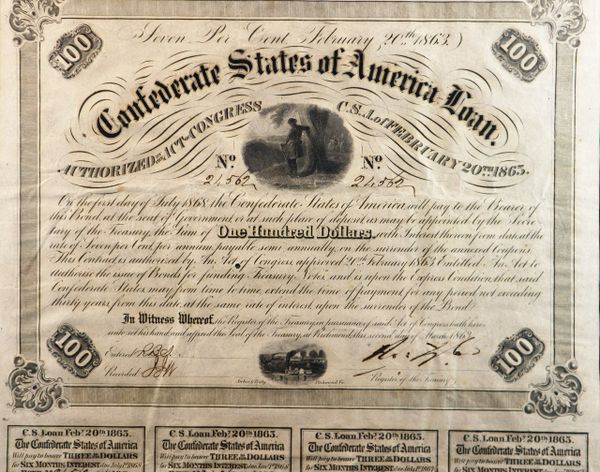 100 100
(Seven Per Cent February 20th 1863.)
Confederate States of America Loan.
AUTHORIZED BY ACT OF CONGRESS C.S.A. of FEBRUARY 20TH 1863.
No No
21,562 21,562
On the first day of July 1868 the Confederate States of America will pay to the Bearer of
this Bond, at the seat of Government, or at such place of deposit as may be appointed by the Secre-
tary of the Treasury, the Sum of One Hundred Dollars, with Interest thereon from date at the
rate of Seven per Cent per annum, payable semi annually, on the surrender of the annexed Coupons.
This Contract is authorized by An Act of Congress approved 20th February 1863 Entitled An Act to
authorise the issue of Bonds for funding Treasury Notes, and is upon the Express Condition that said
Confederate States may from time to time, extend the time of payment for any period not exceeding
thirty years from this date at the same rate of interest, upon the surrender of the Bond.
In Witness Whereof, the Register of the Treasury, in pursuance of said Act of Congress, hath here-
unto set his hand and affixed the Seal of the Treasury, at Richmond, this second day of March 1863
100 100
Entered
Recorded
Archer & Daly Richmond Va.
Register of the Treasury
C.S. Loan Feby 20th 1863. C.S. Loan Feby 20th 1863. C.S. Loan Feby 20th 1863. C.S. Loan Feby 20th 1863.
The Confederate States of America The Confederate States of America The Confederate States of America The Confederate States of America
Will pay to bearer THREE DOLLARS Will pay to bearer THREE DOLLARS Will pay to bearer THREE DOLLARS Will pay to bearer THREE DOLLARS
for SIX MONTHS INTEREST for SIX MONTHS INTEREST for SIX MONTHS INTEREST for SIX MONTHS INTEREST